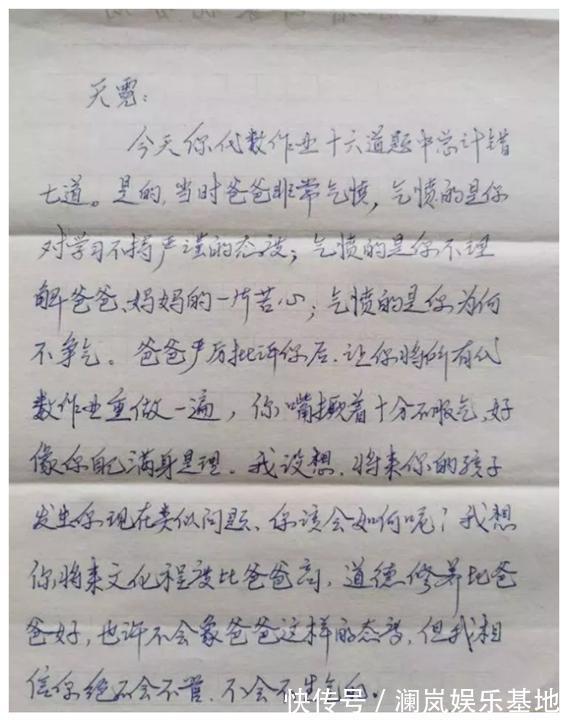 天霓：
今天你代数作业十六道题中总计错
七道。是的，当时爸爸非常气愤，气愤的是你
对学习不持严谨的态度；气愤的是你不理
解爸爸、妈妈的一片苦心；气愤的是你为何
不争气。爸爸严厉批评你后，让你将所有代
数作业重做一遍，你嘴撅着十分不服气，好
像你自己满身是理。我设想，将来你的孩子
发生你现在类似问题，你该会如何呢？我想
你将来文化程度比爸爸高，道德修养比爸
爸好，也许不会象爸爸这样的态度，但我相
信你绝不会不管，不会不生气的。
快传号／澜岚娱乐基地